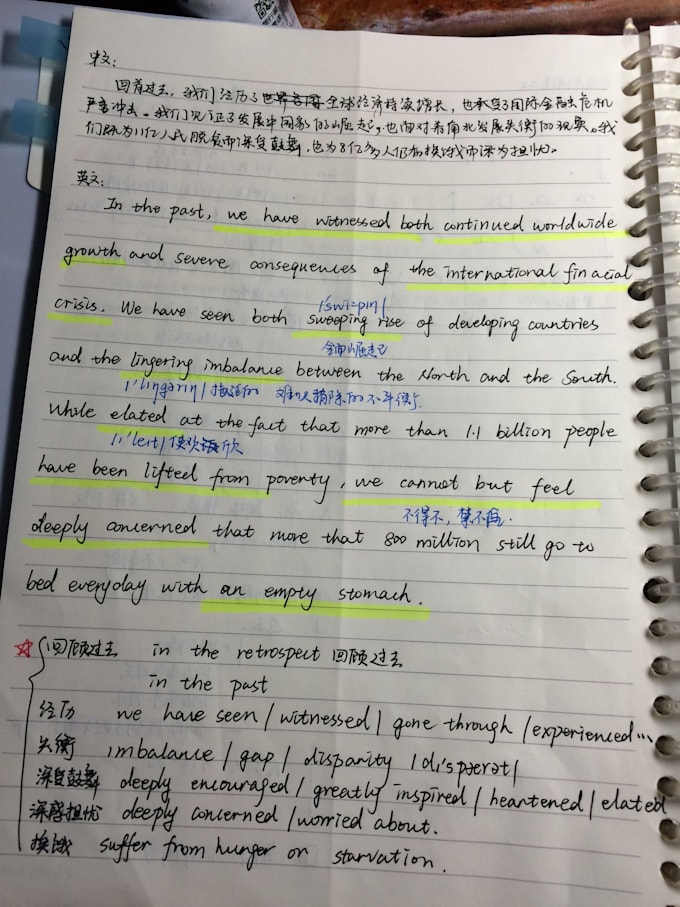 中文:
回首过去, 我们经历了世界各国全球经济持续增长, 也承受了国际金融危机
严重冲击。我们见证了发展中国家的崛起, 也面对着南北发展失衡的现实。我
们既为11亿人民脱贫而深受鼓舞, 也为8亿多人仍在挨饿而深为担忧。
英文:
In the past, we have witnessed both continued worldwide
growth and severe consequences of the international finacial
crisis. We have seen both sweeping rise of developing countries
|'swi:piŋ|
全面崛起
and the lingering imbalance between the North and the South.
|'liŋgəriŋ| 拖延的 难以消除的不平衡
While elated at the fact that more than 1.1 billion people
|i'leit| 使欢欣
have been lifted from poverty, we cannot but feel
不得不, 禁不住.
deeply concerned that more that 800 million still go to
bed everyday with an empty stomach.
☆ 回顾过去 in the retrospect 回顾过去
in the past
经历 we have seen / witnessed / gone through / experienced...
失衡 imbalance / gap / disparity |di'spærət|
深受鼓舞 deeply encouraged / greatly inspired / heartened / elated
深感担忧 deeply concerned / worried about.
挨饿 suffer from hunger or starvation.